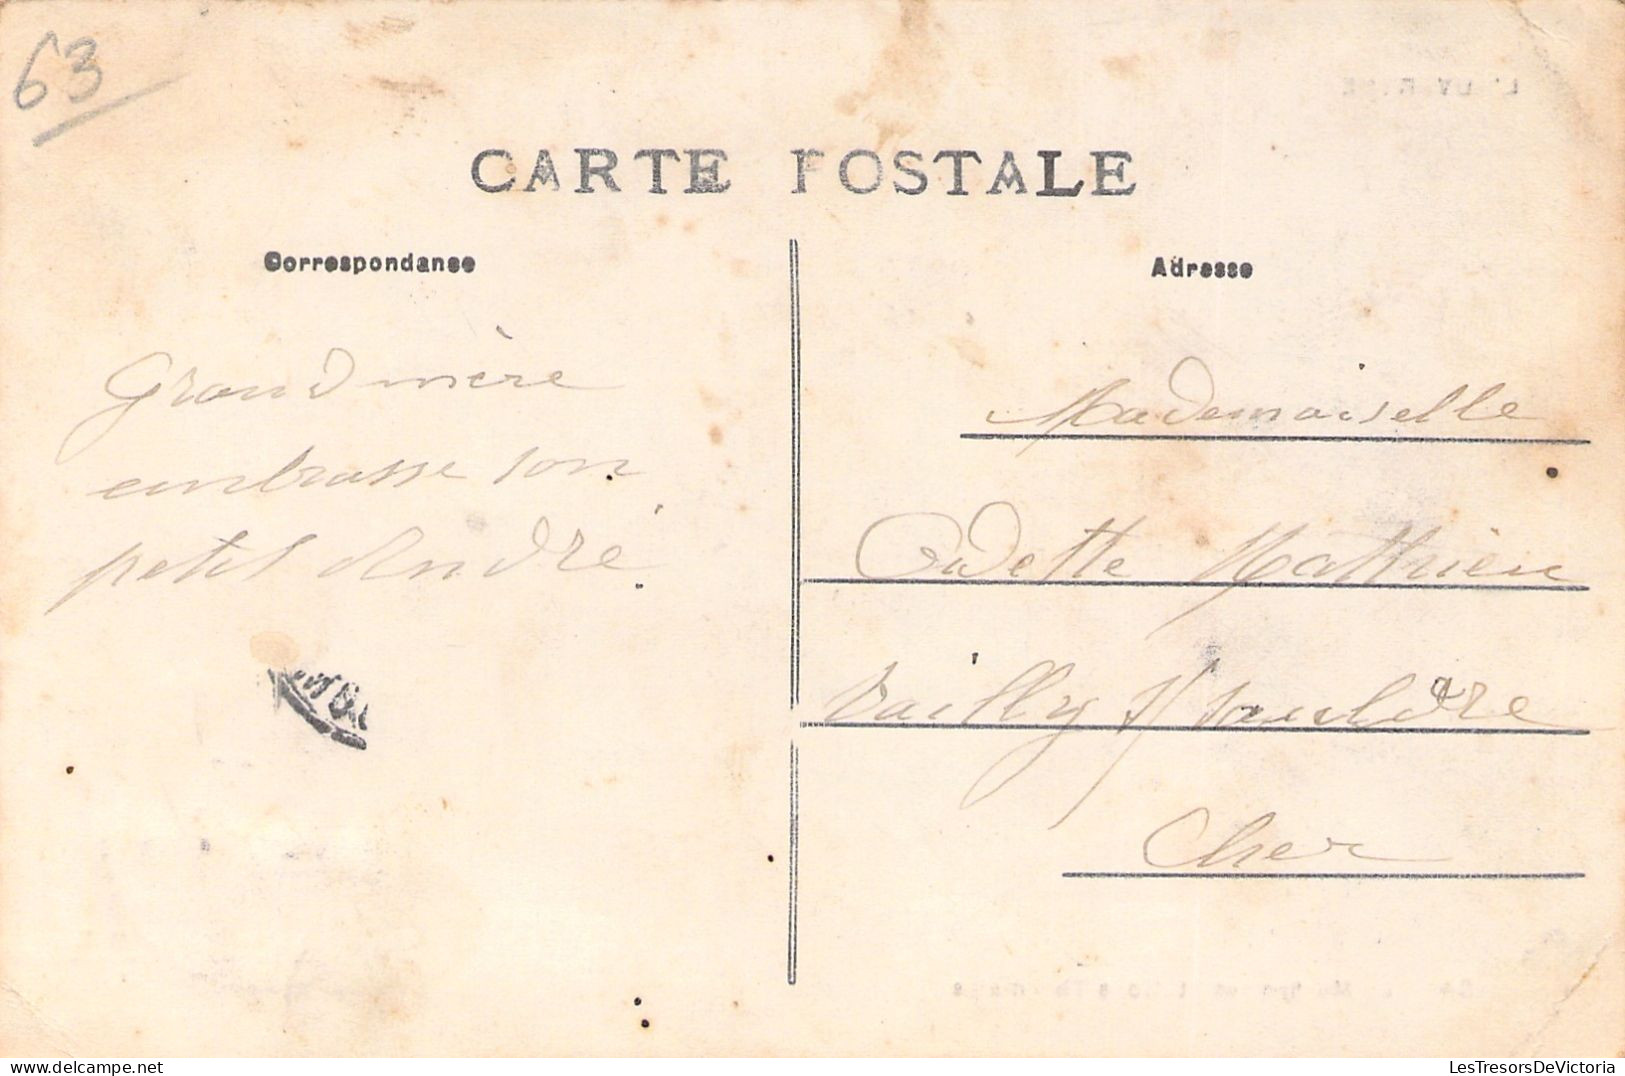 63
CARTE POSTALE
Correspondanse
Adresse
Grand mère
embrasse son
petit André.
Mademoiselle
Odette Mathieu
Vailly s/ Sauldre
Cher
LesTresorsDeVictoria